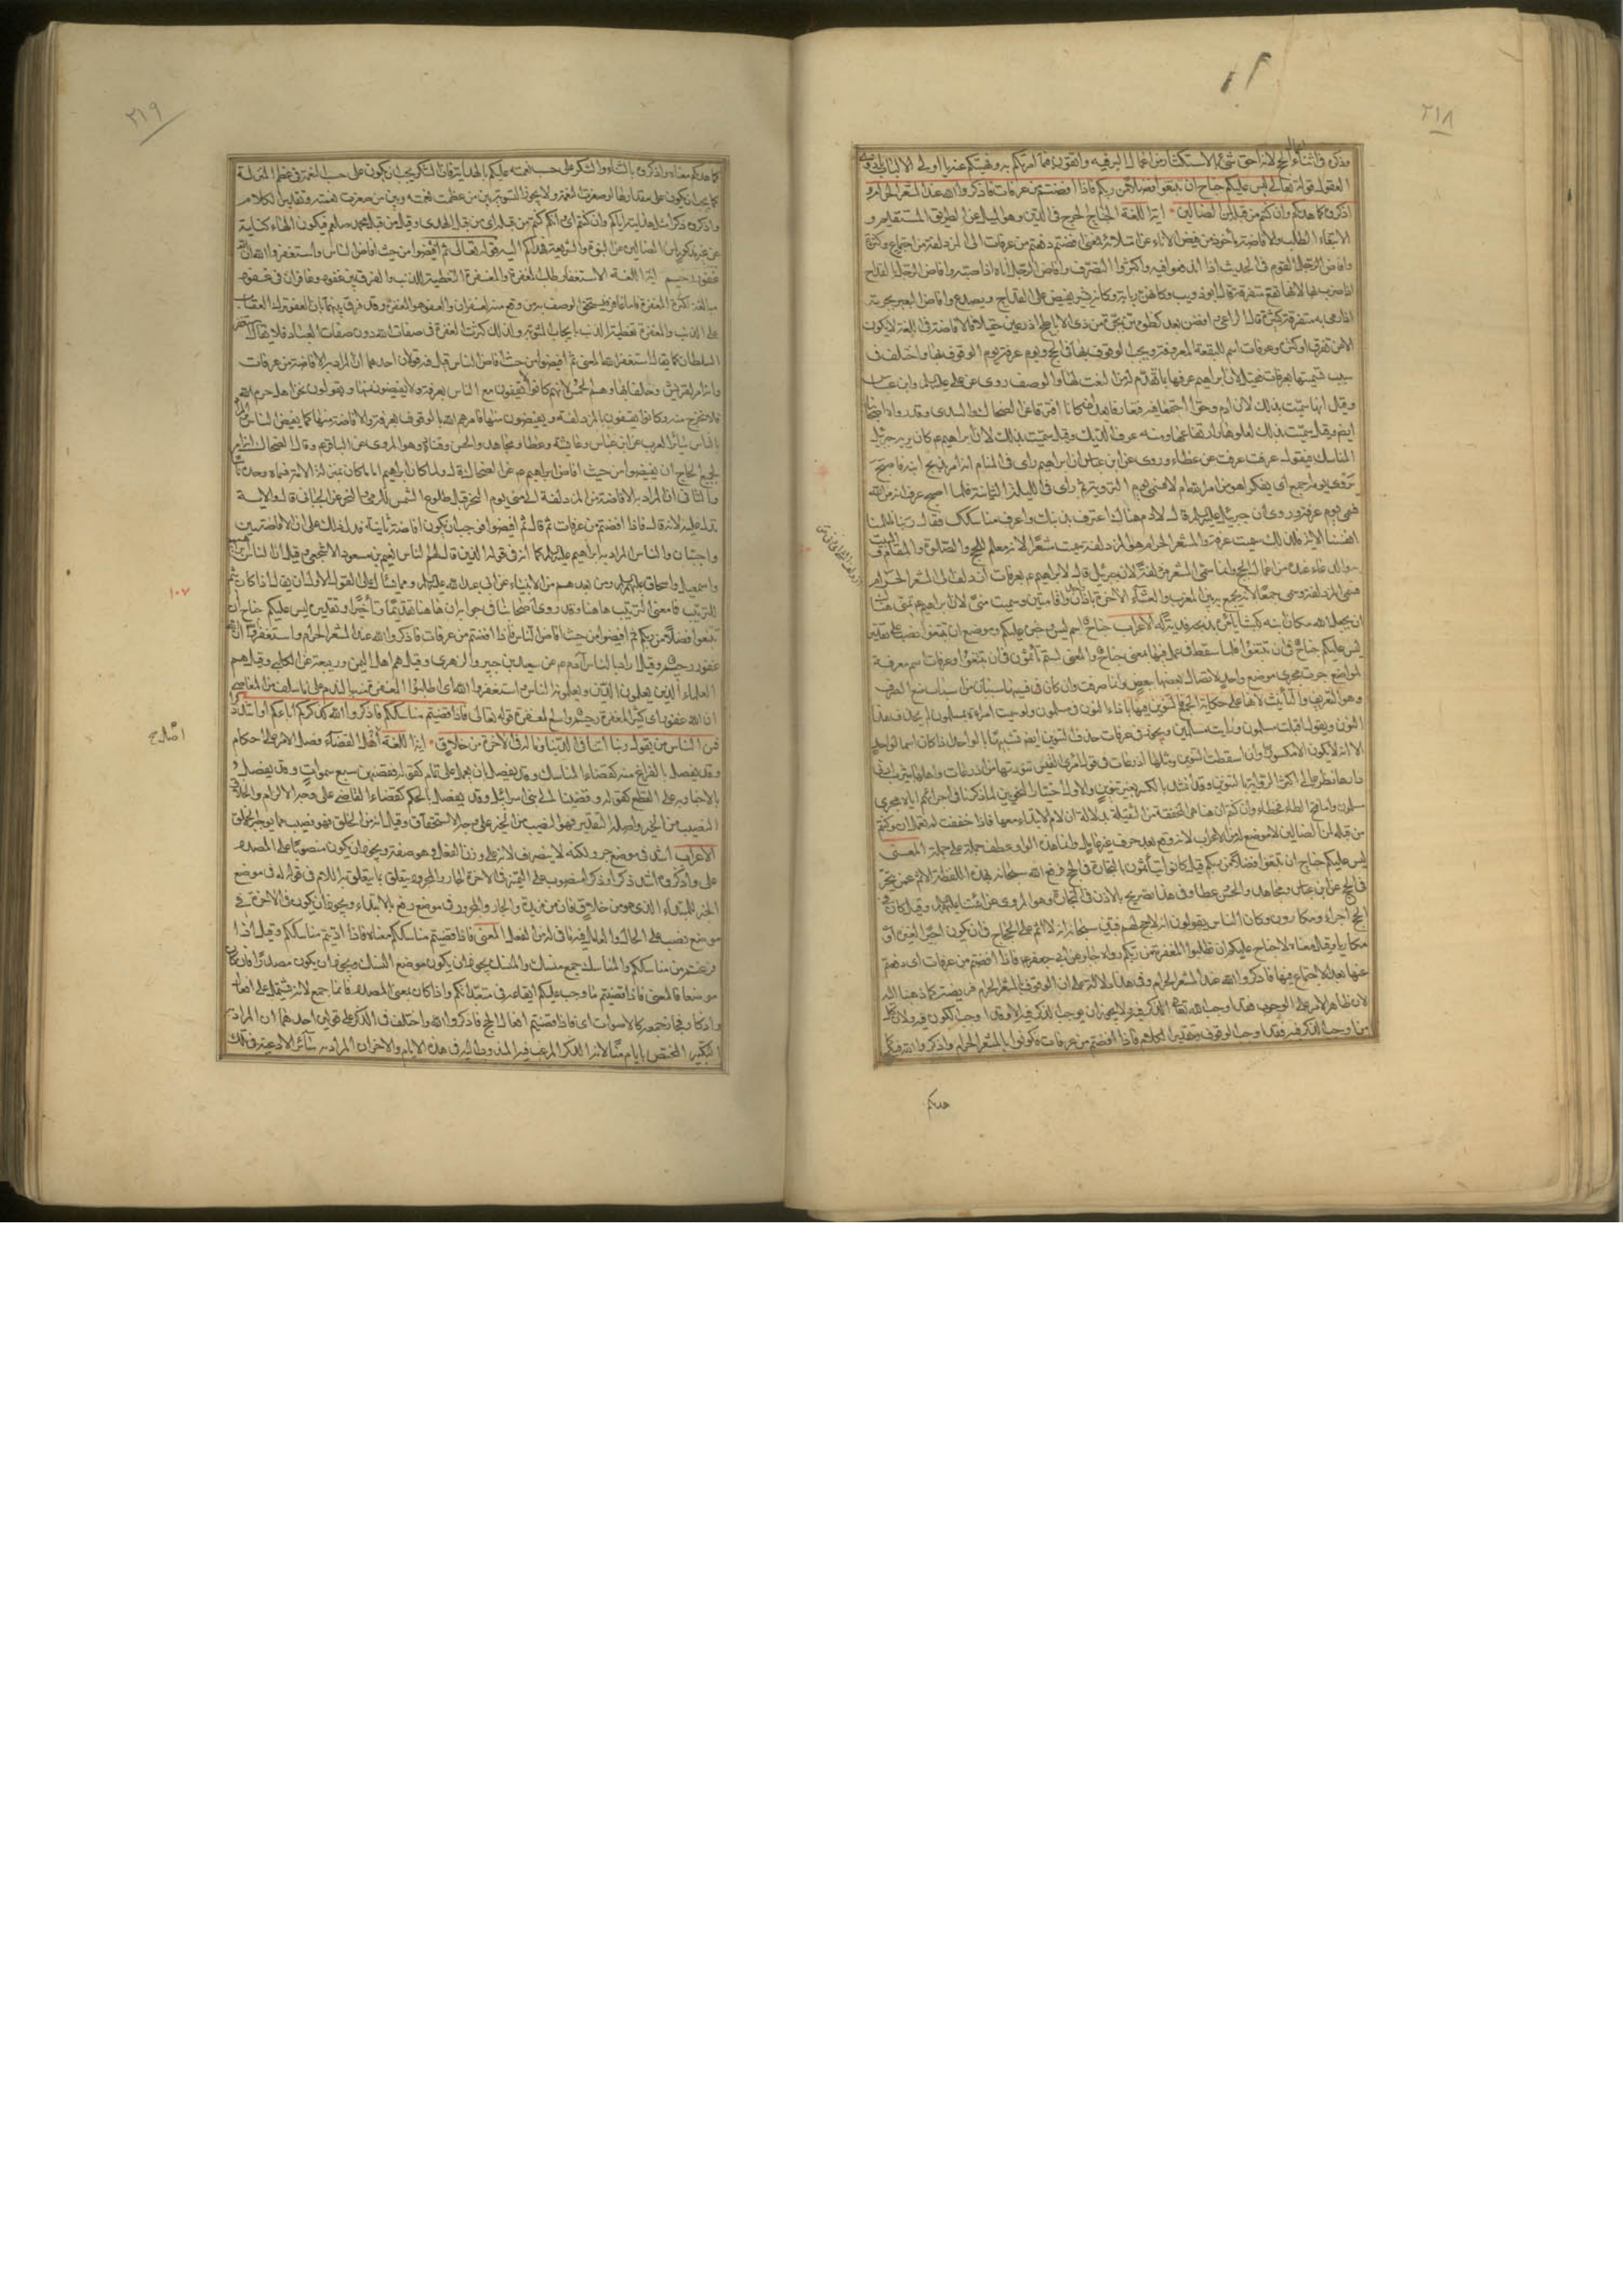 ٢١٨
وذكره في اثناء افعال الحج لانه احق شيء بالاستكثار من اعمال البر فيه واتقون فيما امرتكم به ونهيتكم عنه يا اولي الالباب يا ذوي
العقول قوله تعالى ليس عليكم جناح ان تبتغوا فضلا من ربكم فاذا افضتم من عرفات فاذكروا الله عند المشعر الحرام و
اذكروه كما هديكم وان كنتم من قبله لمن الضالين اية اللغة الجناح الحرج في الدين وهو الميل عن الطريق المستقيم و
الابتغاء الطلب والافاضة مأخوذة من فيض الاناء عن امتلائه فمعنى افضتم دفعتم من عرفات الى المزدلفة عن اجتماع وكثرة
وافاض الرجل القوم في الحديث اذا اندفعوا فيه واكثروا التصرف وافاض الرجل اناءه اذا صبه وافاض الرجل بالقداح
اذا ضرب بها لانها تقع متفرقة قال ابو ذويب وكانهن ربابة وكانه يسر يفيض على القداح ويصدع وافاض البعير بجرته
اذا رمى به متفرقة كثيرة قال الراعي وافضن بعد كظومهن بجرة من ذي الاباطح اذ رعين حقيلا فالافاضة في اللغة لا يكون
الا عن تفرق او كثرة وعرفات اسم للبقعة المعروفة يجب الوقوف بها في الحج ويوم عرفة يوم الوقوف بها واختلف في
سبب تسميتها بعرفات فقيل لان ابراهيم عرفها بما تقدم له من النعت لها والوصف روى عن علي عليه السلم وابن عباس
وقيل انها سميت بذلك لان ادم وحوا اجتمعا فيه فتعارفا بعد ان كانا افترقا عن الضحاك والسدي وقد رواه اصحابنا
ايضم وقيل سميت بذلك لعلوها وارتفاعها ومنه عرف الديك وقيل سميت بذلك لان ابراهيم ع كان يريه جبرئيل
المناسك فيقول عرفت عرفت عن عطاء وروى عن ابن عباس ان ابراهيم راى في المنام انه امر بذبح ابنه فاصبح
يروى يومه اجمع اى يفكر اهو من امر الله ام لا فسمى يوم التروية ثم راى في الليلة الثانية فلما اصبح عرف انه من الله
فسمى يوم عرفة وروى ان جبريل عليه السلم قال لادم هناك اعترف بذنبك واعرف مناسكك فقال ربنا ظلمنا
انفسنا الاية فلذلك سميت عرفة والمشعر الحرام هو المزدلفة سميت مشعرا لانه معلم للحج والصلوة والمقام والمبيت
به والدعاء عنده من اعمال الحج وانما سمى المشعر مزدلفة لان جبرئيل قال لابراهيم ع بعرفات ازدلف الى المشعر الحرام
فسمى المزدلفة وسمى جمعا لانه يجمع به بين المغرب والعشاء الاخرة باذان واحد واقامتين وسميت منى لان ابراهيم ع تمنى هناك
ان يجعل الله مكان ابنه كبشا يأمره بذبحه فدية له الاعراب جناح اسم ليس وخبره عليكم وموضع ان تبتغوا نصب على تقدير
ليس عليكم جناح في ان تبتغوا فلما سقط في عمل فيها معنى جناح والمعنى لستم تأثمون في ان تبتغوا وعرفات اسم معرفة
لمواضع جرت مجرى موضع واحد لاتصال بعضها ببعض وانما صرفت وان كان فيها سببان من اسباب منع الصرف
وهو التعريف والتأنيث لانها على حكاية الجمع فالتنوين فيها بازاء النون في مسلمون ولو سميت امراة بمسلمون لم يحذف هذا
النون ويقول اقبلت مسلمون ورايت مسلمين ويجوز في عرفات حذف التنوين ايضم تشبيها بالواحد اذا كان اسما لواحد
الا انه لا يكون الا مكسورا وان اسقطت التنوين ومثلها اذرعات في قول امرئ القيس تنورتها من اذرعات واهلها بيثرب ادنى
دارها نظر عالي اكثر الرواية بالتنوين وقد انشد بالكسر بغير تنوين والاول اختيار النحويين لما ذكرنا في اجرائهم اياه مجرى
مسلمون وان كنتم ان هنا هي المخففة من الثقيلة بدلالة ان لام الابتداء معها فاذا خففت لم تعمل ان وكنتم
من قبله لمن الضالين لا موضع له من الاعراب لانه وقع بعد حرف غير عامل وانما هذه الواو عطف جملة على جملة المعنى
ليس عليكم جناح ان تبتغوا فضلا من ربكم قيل كانوا يتأثمون بالتجارة في الحج فرفع الله سبحانه بهذه اللفظة الاثم عمن يتجر
في الحج عن ابن عباس ومجاهد والحسن وعطا وفي هذا تصريح بالاذن في التجارة وهو المروى عن ائمتنا عليهم السلم وقيل كان في
الحج اجراء ومكارون وكان الناس يقولون انه لا حج لهم فبين سبحانه انه لا اثم على الحاج في ان يكون اجيرا لغيره او
مكاريا وقيل معناه لا جناح عليكم ان تطلبوا المغفرة من ربكم رواه جابر عن ابي جعفر ع فاذا افضتم من عرفات اى دفعتم
عنها بعد الاجتماع فيها فاذكروا الله عند المشعر الحرام وفي هذا دلالة على ان الوقوف بالمشعر الحرام فريضة كما ذهبنا اليه
لان ظاهر الامر على الوجوب فقد اوجب الله تعالى الذكر فيه ولا يجوز ان يوجب الذكر فيه الا وقد اوجب الكون فيه ولان كل
من اوجب الذكر فيه فقد اوجب الوقوف وتقدير الكلام فاذا افضتم من عرفات فكونوا بالمشعر الحرام واذكروا الله فيه كما
هديكم
٢١٩
كما هديكم معناه واذكروه بالثناء والشكر على حسب نعمته عليكم بالهداية فان الشكر يجب ان يكون على حسب النعمة في عظم المنزلة
كما يجب ان يكون على مقدارها لو صغرت النعمة ولا يجوز التسوية بين من عظمت نعمته وبين من صغرت نعمته وتقدير الكلام
واذكروه ذكرا مثل هدايته اياكم وان كنتم اى انكم كنتم من قبله اى من قبل الهدى وقيل من قبل محمد صلعم فيكون الهاء كناية
عن غير مذكور لمن الضالين عن النبوة والشريعة فهداكم اليه قوله تعالى ثم افيضوا من حيث افاض الناس واستغفروا الله ان الله
غفور رحيم اية اللغة الاستغفار طلب المغفرة والمغفرة التغطية للذنب والفرق بين غفور وغافر ان في غفور
مبالغة لكثرة المغفرة فاما غافر فيستحق الوصف به من وقع منه الغفران والعفو هو المغفرة وقد فرق بينهما بان العفو ترك العقاب
على الذنب والمغفرة تغطية الذنب بايجاب المثوبة ولذلك كثرت المغفرة في صفات الله دون صفات العباد فلا يقال استغفر
السلطان كما يقال استغفر الله المعنى ثم افيضوا من حيث افاض الناس قيل فيه قولان احدهما ان المراد به الافاضة من عرفات
وانه امر لقريش وحلفائها وهم الحمس لانهم كانوا لا يقفون مع الناس بعرفة ولا يفيضون منها ويقولون نحن اهل حرم الله
فلا نخرج منه وكانوا يقفون بالمزدلفة ويفيضون منها فامرهم الله بالوقوف بعرفة والافاضة منها كما يفيض الناس والمراد
بالناس سائر العرب عن ابن عباس وعائشة وعطا ومجاهد والحسن وقتادة وهو المروى عن الباقر ع وقال الضحاك انه امر
لجميع الحاج ان يفيضوا من حيث افاض ابراهيم ع عن الضحاك قال ولما كان ابراهيم اماما كان بمنزلة الامة فسماه وحده ناسا
والثاني ان المراد به الافاضة من المزدلفة الى منى يوم النحر قبل طلوع الشمس للرمى والنحر عن الجبائي قال والاية
تدل عليه لانه قال فاذا افضتم من عرفات ثم قال ثم افيضوا فوجب ان يكون افاضة ثانية فدل ذلك على ان الافاضتين
واجبتان والناس المراد به ابراهيم عليه السلم كما انه في قوله الذين قال لهم الناس نعيم بن مسعود الاشجعي وقيل ان الناس ابراهيم
واسمعيل واسحاق عليهم السلم ومن بعدهم من الانبياء عن ابي عبد الله عليه السلم ومما يسئل على القول الاول ان يقال اذا كان ثم
للترتيب فما معنى الترتيب هاهنا وقد روى اصحابنا في جوابه ان هاهنا تقديما وتأخيرا وتقديره ليس عليكم جناح ان
تبتغوا فضلا من ربكم ثم افيضوا من حيث افاض الناس فاذا افضتم من عرفات فاذكروا الله عند المشعر الحرام واستغفروا الله ان الله
غفور رحيم وقيل اراد بالناس آدم ع عن سعيد بن جبير والزهري وقيل هم اهل اليمن وربيعة عن الكلبي وقيل هم
العلماء الذين يعلمون الدين ويعلمونه الناس واستغفروا الله اى اطلبوا المغفرة منه بالندم على ما سلف من المعاصي
ان الله غفور اى كثير المغفرة رحيم واسع المغفرة قوله تعالى فاذا قضيتم مناسككم فاذكروا الله كذكركم اباءكم او اشد ذكرا
فمن الناس من يقول ربنا اتنا في الدنيا وما له في الاخرة من خلاق اية اللغة اصل القضاء فصل الامر على احكام
وقد يفصل بالفراغ منه كقضاء المناسك وقد يفصل بان يعمل على تمام كقوله فقضهن سبع سموات وقد يفصل
بالاخبار به على القطع كقوله وقضينا الى بني اسرائيل وقد يفصل بالحكم كقضاء القاضي على وجه الالزام والخلاق
النصيب من الخير واصله التقدير فهو النصيب من الخير على وجه الاستحقاق وقيل انه من الخلق فهو نصيب مما يوجبه الخلق
الاعراب اشد في موضع جر ولكنه لا ينصرف لانه على وزن الفعل وهو صفة ويجوز ان يكون منصوبا على المصدر
على واذكروه اشد ذكرا وذكرا منصوب على التميز في الاخرة الجار والمجرور يتعلق بما يتعلق به اللام في قوله له في موضع
الخبر للمبتداء الذي هو من خلاق فان من مزيدة والجار والمجرور في موضع رفع بالابتداء ويجوز ان يكون في الاخرة في
موضع نصب على الحال والعامل فيه ما في له من الفعل المعنى فاذا قضيتم مناسككم معناه فاذا اديتم مناسككم وقيل اذا
فرغتم من مناسككم والمناسك جمع منسك والمنسك يجوز ان يكون موضع النسك ويجوز ان يكون مصدرا فان كان
موضعا فالمعنى فاذا قضيتم ما وجب عليكم ايقاعه في متعبداتكم واذا كان بمعنى المصدر فانما جمع لانه يشتمل على افعال
واذكار فجاز جمعه كالاصوات اى فاذا قضيتم افعال الحج فاذكروا الله واختلف في الذكر على قولين احدهما ان المراد به
التكبير المختص بايام منى لانه الذكر المرغب فيه المندوب اليه في هذه الايام والاخر ان المراد به سائر الادعية في تلك
١٠٧